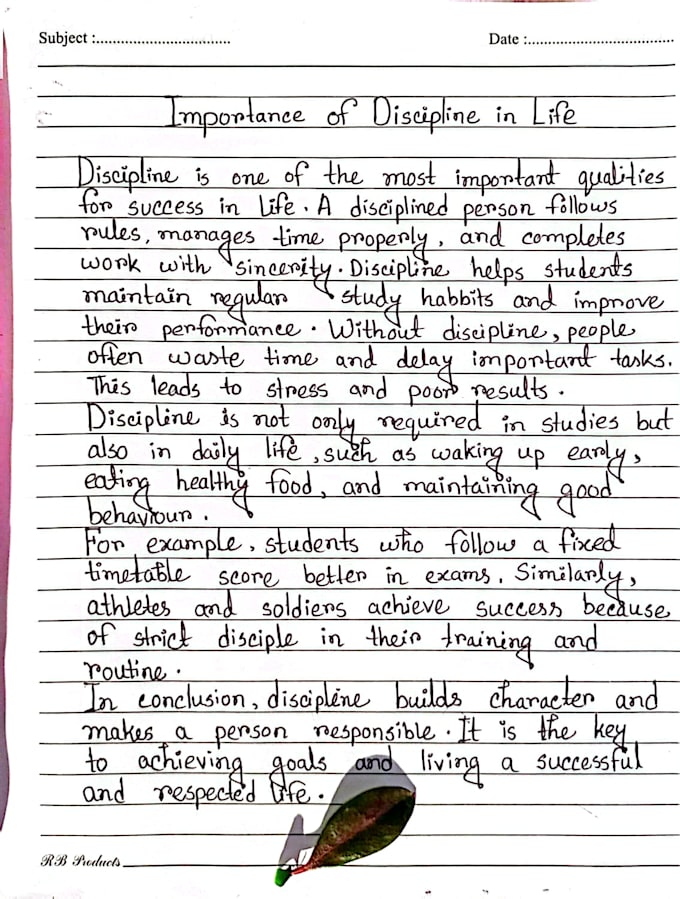 Subject :.................................
Date :....................................
Importance of Discipline in Life
Discipline is one of the most important qualities
for success in life. A disciplined person follows
rules, manages time properly, and completes
work with sincerity. Discipline helps students
maintain regular study habbits and improve
their performance. Without discipline, people
often waste time and delay important tasks.
This leads to stress and poor results.
Discipline is not only required in studies but
also in daily life, such as waking up early,
eating healthy food, and maintaining good
behaviour.
For example, students who follow a fixed
timetable score better in exams. Similarly,
athletes and soldiers achieve success because
of strict disciple in their training and
routine.
In conclusion, discipline builds character and
makes a person responsible. It is the key
to achieving goals and living a successful
and respected life.
RB Products